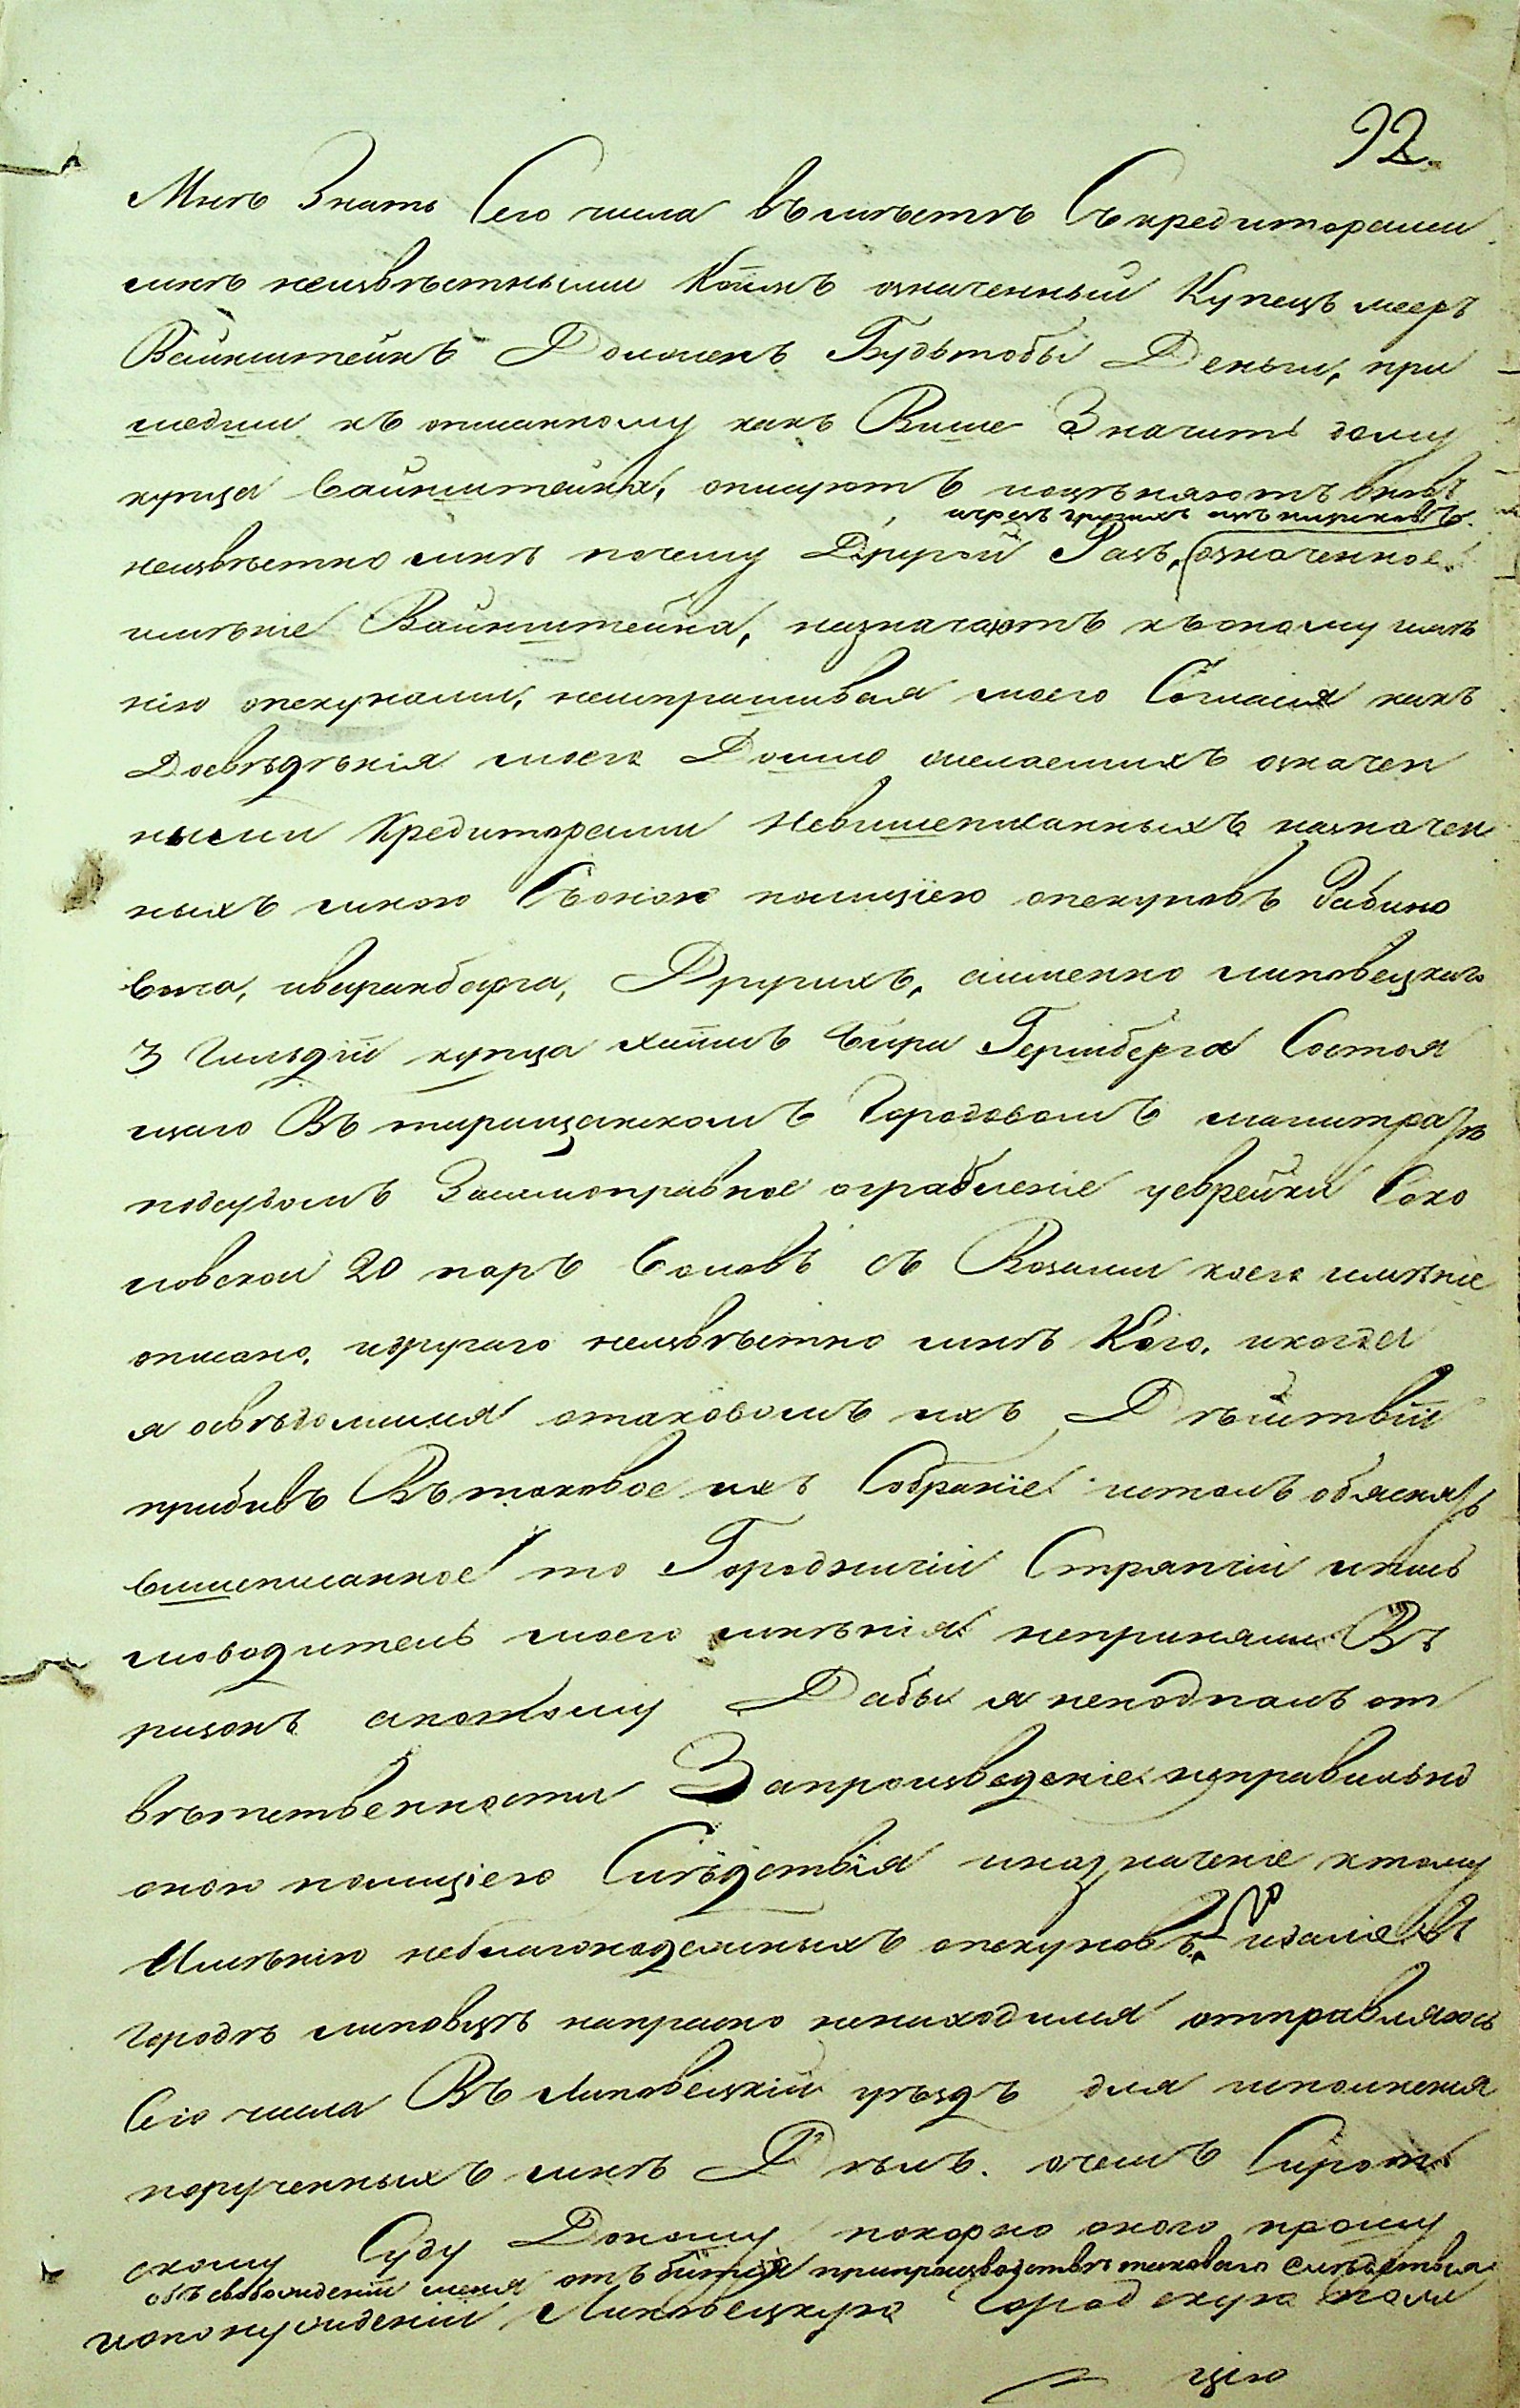 92.
Мнѣ Знать Сего числа вѣмѣстѣ Съкредиторами
мнѣ неизвѣстными Коимъ означенный Купецъ мееръ
Вайнштейнъ Долженъ Будьтобы Деньги, при
шедши къ описанному какъ Више Значитъ дому
купца вайнштейна, описуютъ иоцѣняютъ вновь
чрезъ других оцѣнщиковъ
неизвѣстно мнѣ почему Другой Разъ, означенное
имѣніе Вайнштейна, назначаютъ къоному имѣ
нію опекунами, неиспрашивая моего Согласія какъ
Досвѣдѣнія моего Дошло желаемихъ означен
ными Кредиторами Невишеписанныхъ назначен
ныхъ мною Съоною полиціею опекуновъ Рабино
вича, иваранбарга, Другихъ, аименно липовецкаго
3 Гильдіи купца хаимъ Бера Герінберга Состоя
щаго Въ таращанскомъ Городовомъ магистратѣ
подсудомъ Засамоправное ограбленіе уеврейки Соко
ловской 20 паръ воловъ съ Возами коего имѣніе
описано, идругаго неизвѣстно мнѣ Кого, икогда
я освѣдомился отаковомъ ихъ Дѣйствіи
прибивъ Въ таковое ихъ Собраніе иставъ обяснять
вишеписанное то Городничій Стряпчій ипись
моводитель моего мнѣнія непринялы Въ
ризонъ апотому Дабы я неподпалъ от
вѣтственности Запроизведеніе неправильно
оною полиціею Слѣдствія иназначеніе ктому
Имѣнію неблагонадежныхъ опекуновъ идалѣе въ
городѣ липовцѣ напрасно ненаходился отправляюсь
Сего числа Въ Липовецкій уѣздъ для исполненія
порученныхъ мнѣ Дѣлъ. очемъ Сирот
скому Суду Доношу покорно оного прошу
объ свобожденіи меня отъ битія припроизводствѣ таковаго Слѣдствія
иопонужденіи Липовецкую Городскую поли
цію